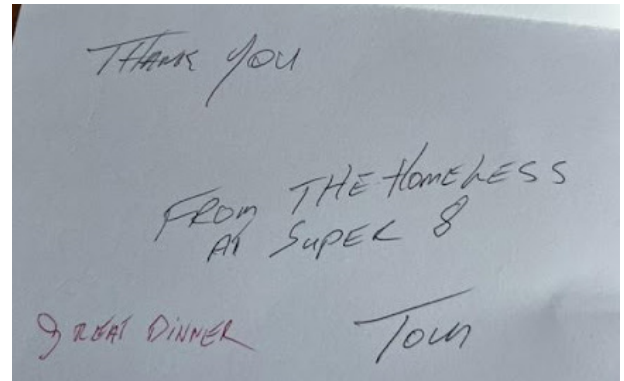 THANK YOU
FROM THE HOMELESS
AT SUPER 8
GREAT DINNER
Tom